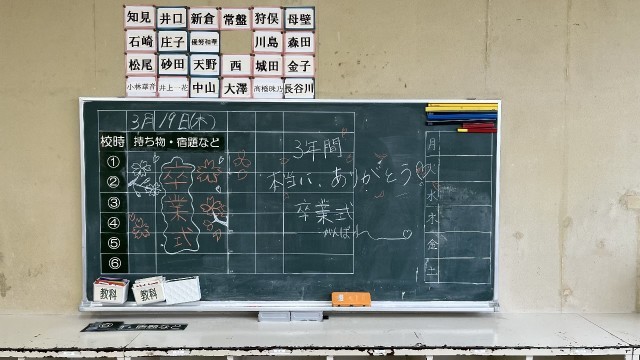 知見 井口 新倉 常盤 狩俣 母壁
石崎 庄子 川島 森田
松尾 砂田 天野 西 城田 金子
小林 井上一花 中山 大澤 長谷川
3月19日(木)
校時 持ち物・宿題など
①
②
③
④
⑤
⑥
卒業式
3年間
本当に、ありがとう
卒業式
がんばれ
月
火
水
木
金
土
教科
教科
宿題など